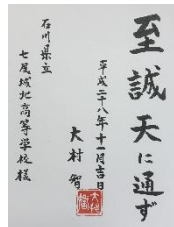 至誠天に通ず
平成二十八年十一月吉日
大村智
石川県立
七尾城北高等学校様
大村智